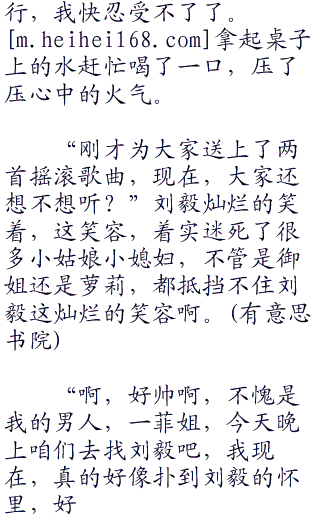 行，我快忍受不了了。
[m.heihei168.com]拿起桌子
上的水赶忙喝了一口，压了
压心中的火气。
“刚才为大家送上了两
首摇滚歌曲，现在，大家还
想不想听？”刘毅灿烂的笑
着，这笑容，着实迷死了很
多小姑娘小媳妇，不管是御
姐还是萝莉，都抵挡不住刘
毅这灿烂的笑容啊。(有意思
书院)
“啊，好帅啊，不愧是
我的男人，一菲姐，今天晚
上咱们去找刘毅吧，我现
在，真的好像扑到刘毅的怀
里，好